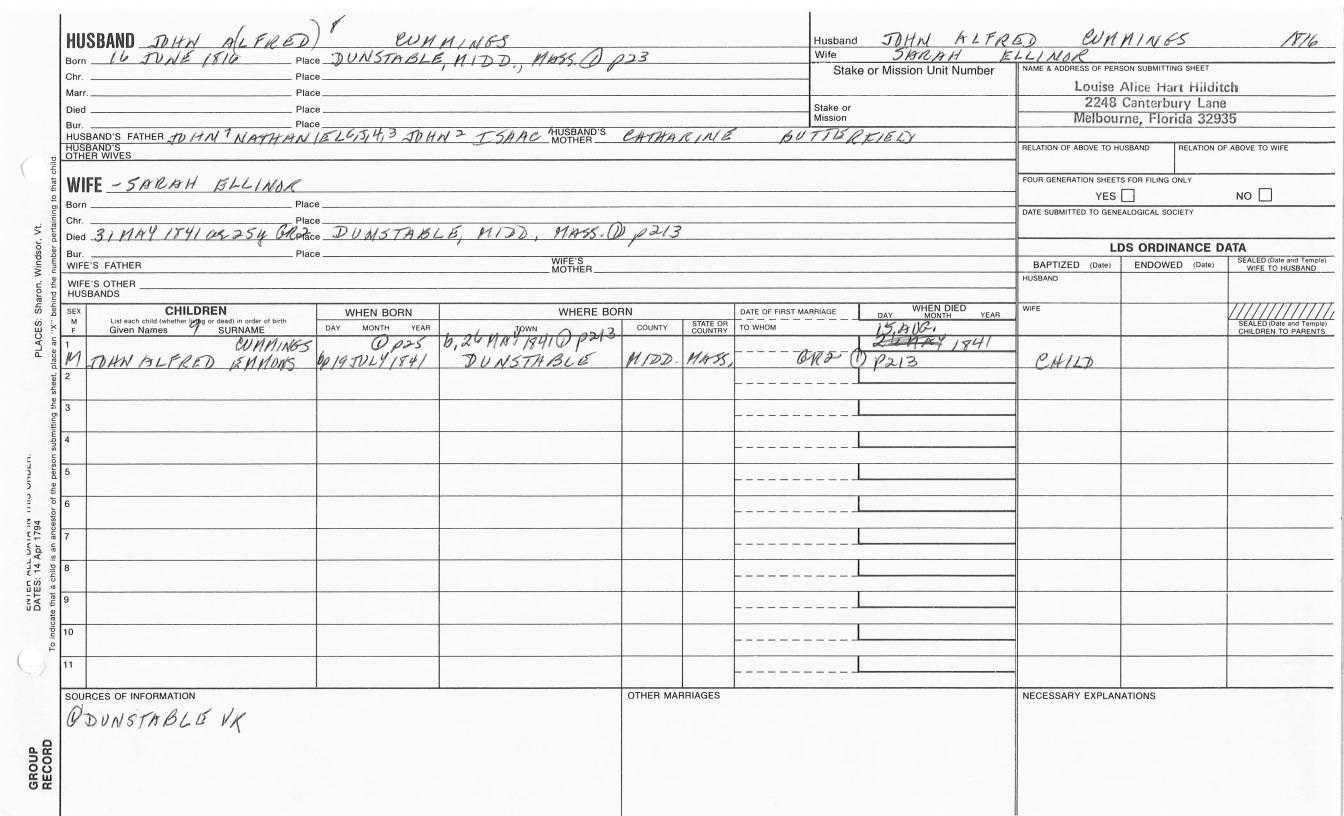 HUSBAND JOHN A(LFRED) 8 CUMMINGS
Born 16 JUNE 1816 Place DUNSTABLE, MIDD., MASS. ① p23
Chr. Place
Marr. Place
Died Place
Bur. Place
HUSBAND'S FATHER JOHN 7 NATHANIEL 6,5,4,3 JOHN 2 ISAAC 1 HUSBAND'S MOTHER CATHARINE BUTTERFIELD
HUSBAND'S OTHER WIVES
Husband JOHN ALFRED CUMMINGS 1816
Wife SARAH ELLINOR
Stake or Mission Unit Number
Stake or Mission
NAME & ADDRESS OF PERSON SUBMITTING SHEET
Louise Alice Hart Hilditch
2248 Canterbury Lane
Melbourne, Florida 32935
RELATION OF ABOVE TO HUSBAND RELATION OF ABOVE TO WIFE
FOUR GENERATION SHEETS FOR FILING ONLY
YES NO
DATE SUBMITTED TO GENEALOGICAL SOCIETY
WIFE - SARAH ELLINOR
Born Place
Chr. Place
Died 31 MAY 1841 ae 25y GR2 Place DUNSTABLE, MIDD, MASS. ① p213
Bur. Place
WIFE'S FATHER WIFE'S MOTHER
WIFE'S OTHER HUSBANDS
LDS ORDINANCE DATA
BAPTIZED (Date) ENDOWED (Date) SEALED (Date and Temple) WIFE TO HUSBAND
HUSBAND
WIFE
SEALED (Date and Temple) CHILDREN TO PARENTS
SEX M F
CHILDREN
List each child (whether living or dead) in order of birth
Given Names 9 SURNAME
WHEN BORN
DAY MONTH YEAR
WHERE BORN
TOWN COUNTY STATE OR COUNTRY
DATE OF FIRST MARRIAGE
TO WHOM
WHEN DIED
DAY MONTH YEAR
1 CUMMINGS ① p25 b. 26 MAY 1841 ① p213 15 AUG. 1841
M JOHN ALFRED EMMONS bp 19 JULY 1841 DUNSTABLE MIDD. MASS. GR2 ① p213 CHILD
2
3
4
5
6
7
8
9
10
11
SOURCES OF INFORMATION
① DUNSTABLE VR
OTHER MARRIAGES
NECESSARY EXPLANATIONS
PLACES: Sharon, Windsor, Vt.
DATES: 14 Apr 1794
To indicate that a child is an ancestor of the person submitting the sheet, place an "X" behind the number pertaining to that child.
GROUP RECORD